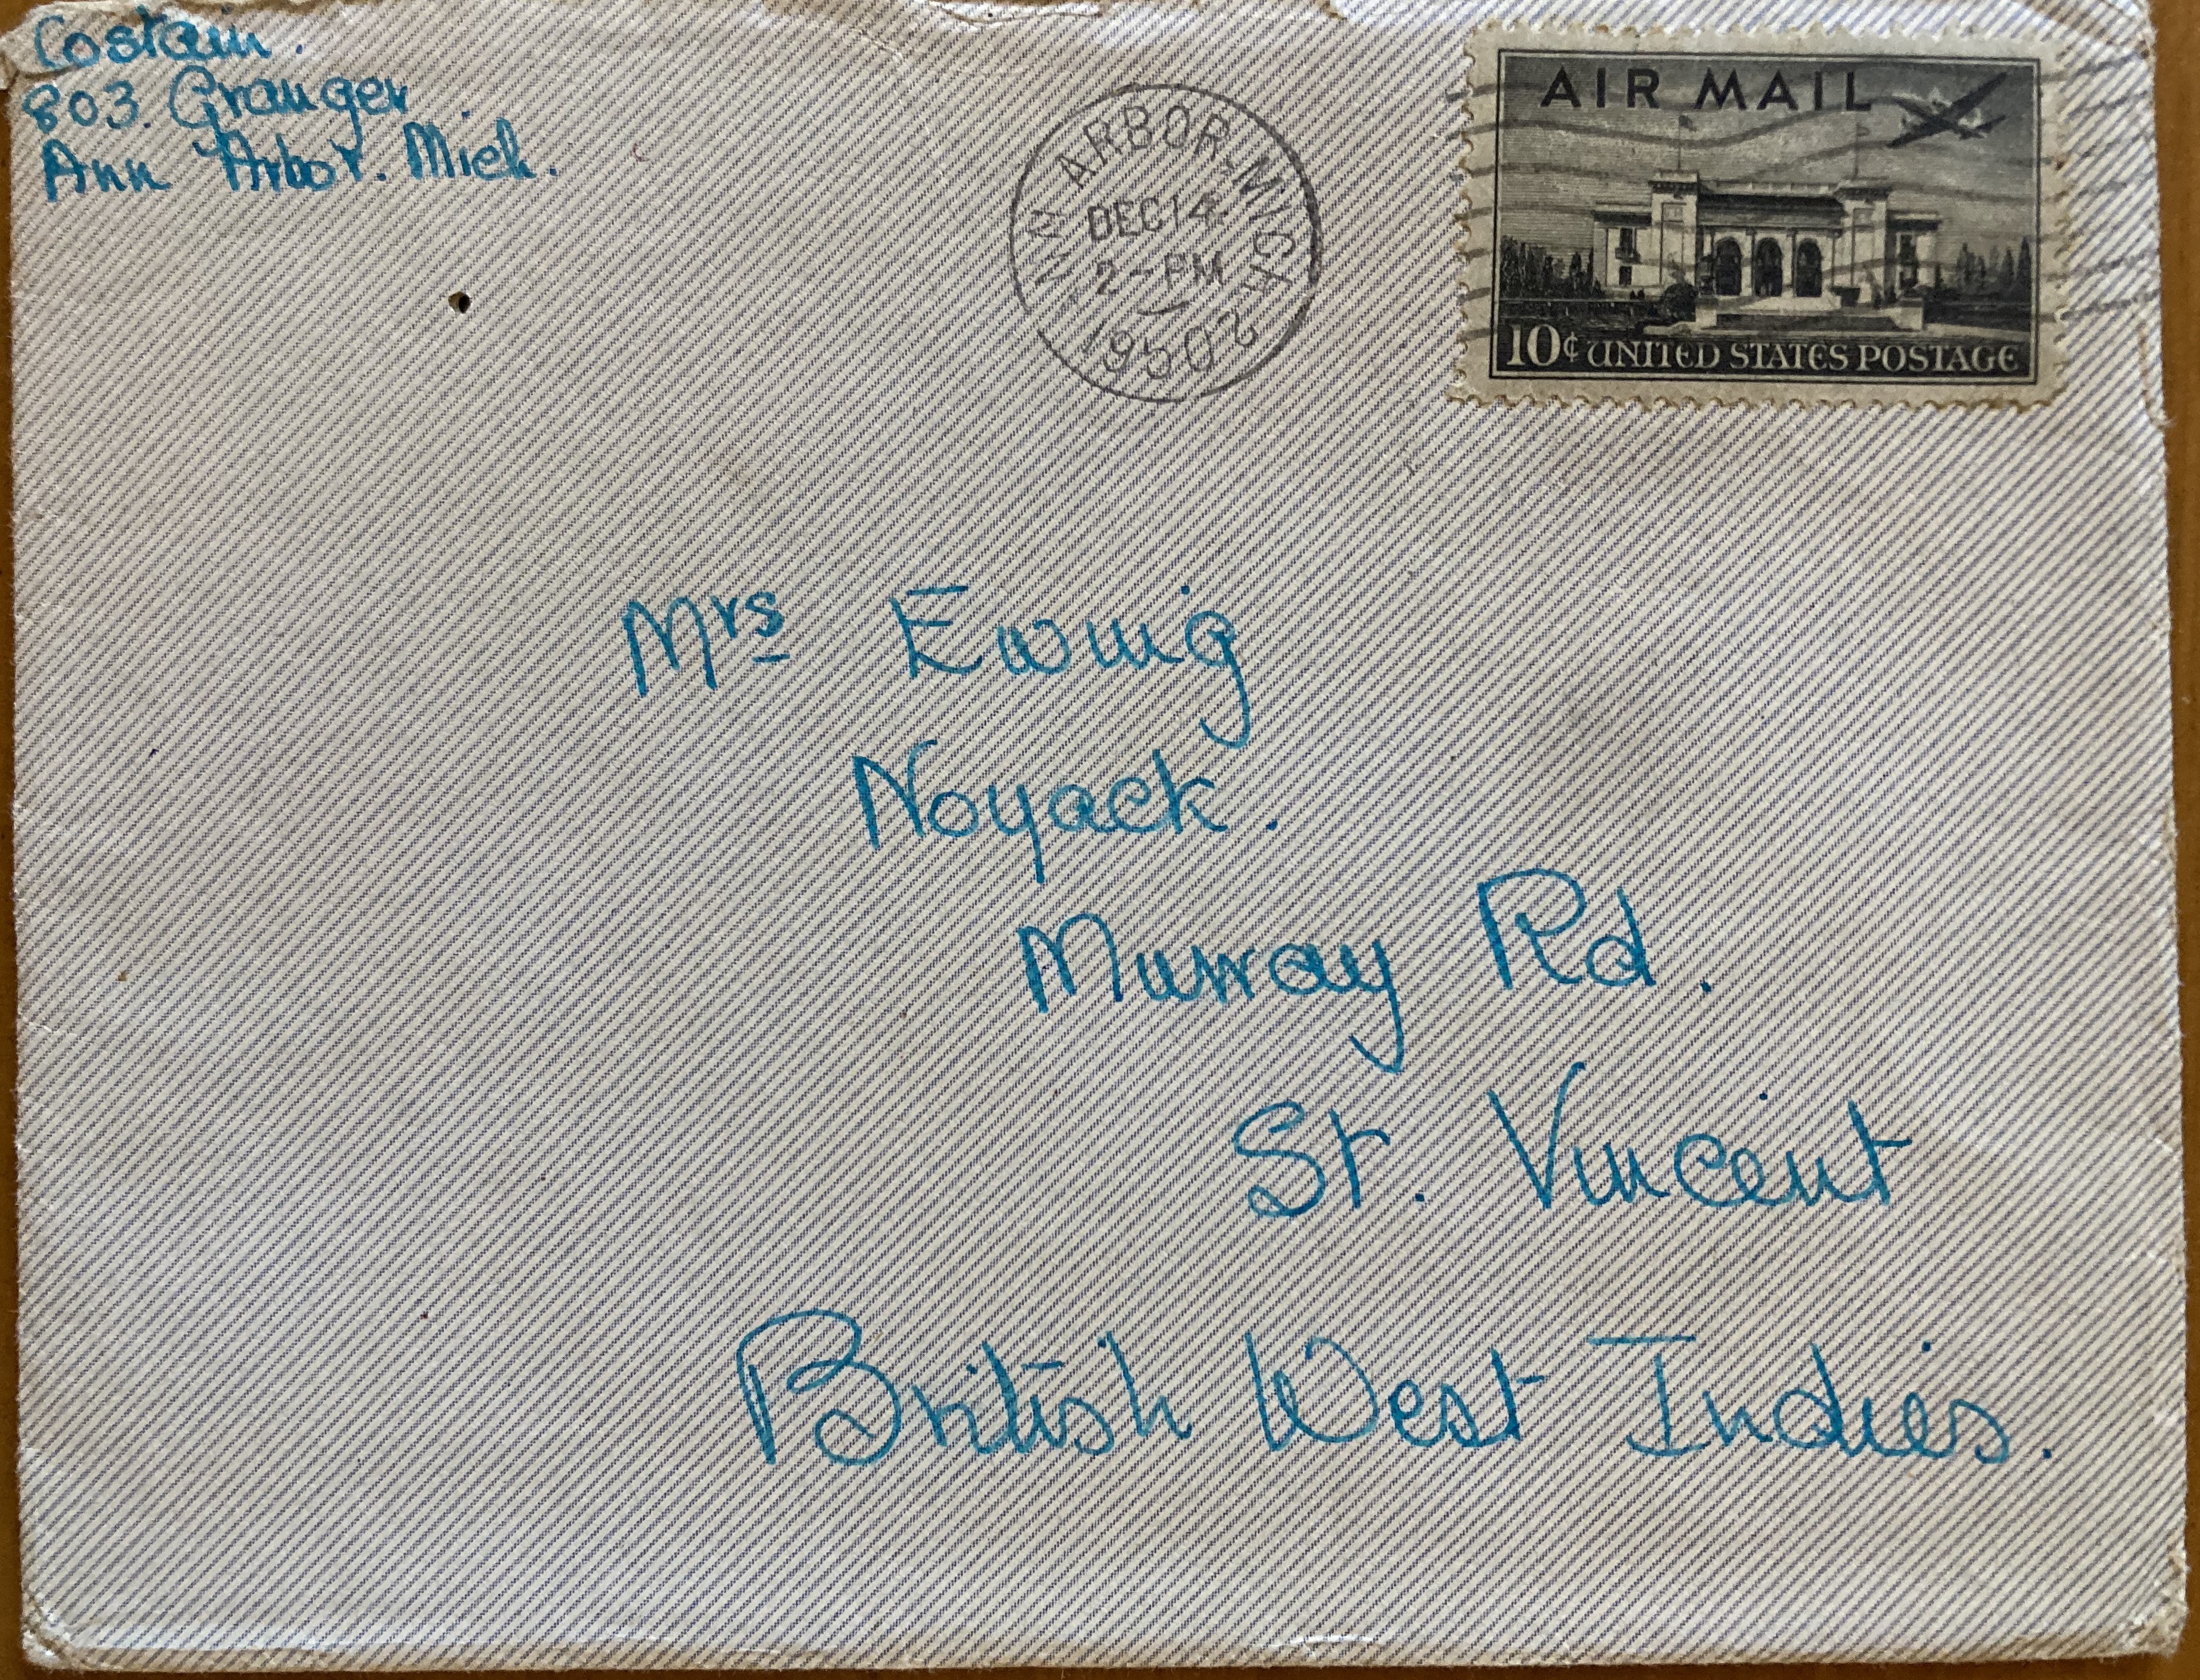 Costain.
803. Granger
Ann Arbor. Mich.
ANN ARBOR, MICH.
DEC 14
2 - PM
1950
2
AIR MAIL
10¢ UNITED STATES POSTAGE
Mrs Ewing
Noyack.
Murray Rd.
St. Vincent
British West Indies.